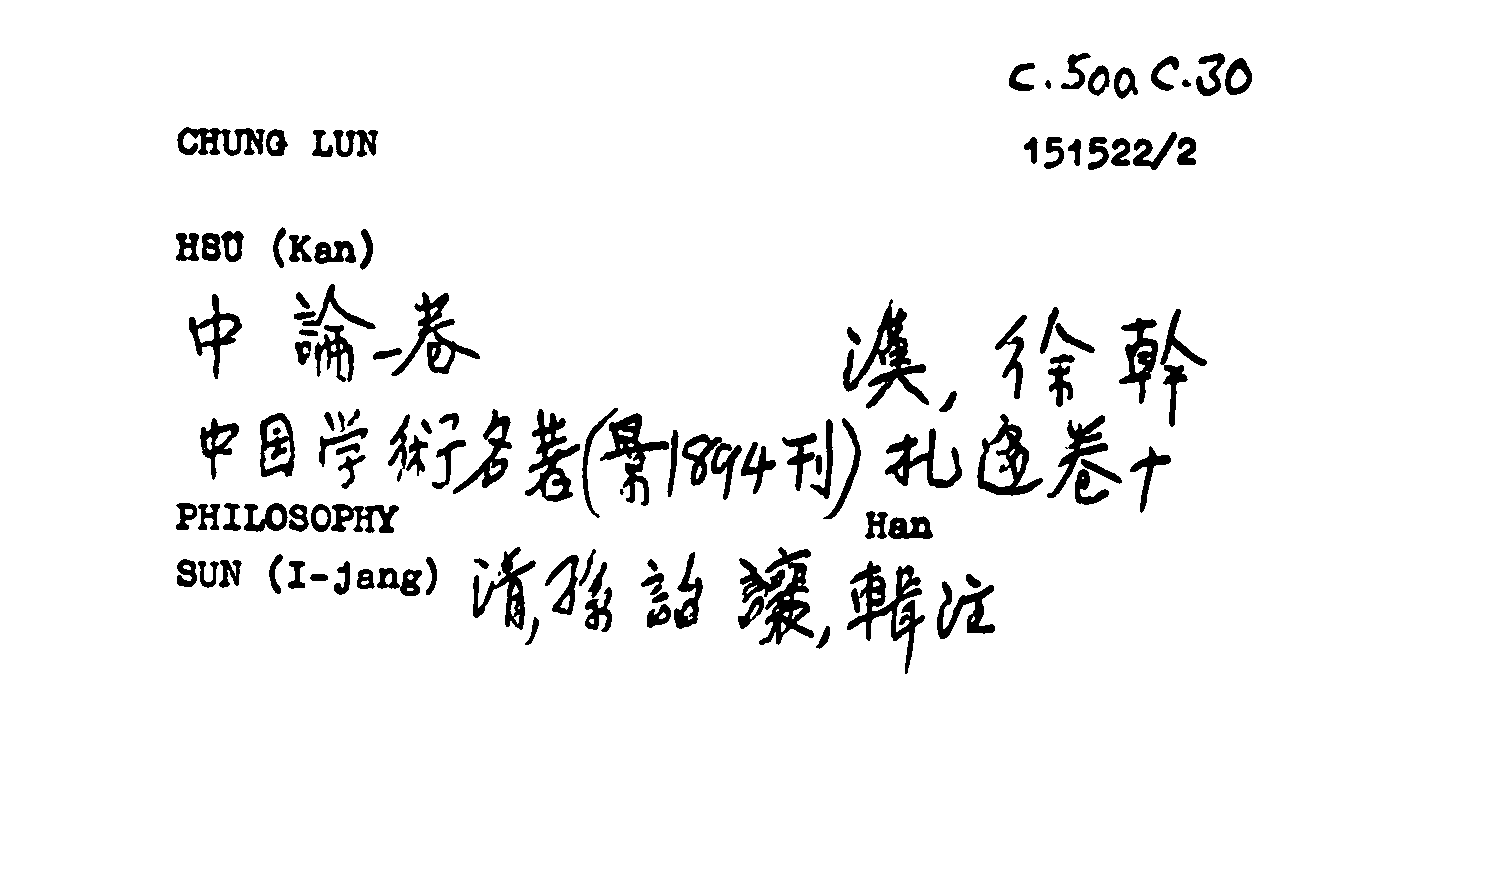 C.50a C.30
CHUNG LUN
151522/2
HSÜ (Kan)
中論一卷 漢,徐幹
中国学術名著(景1894刊) 扎迻卷十
PHILOSOPHY Han
SUN (I-jang) 清,孫詒讓,輯注